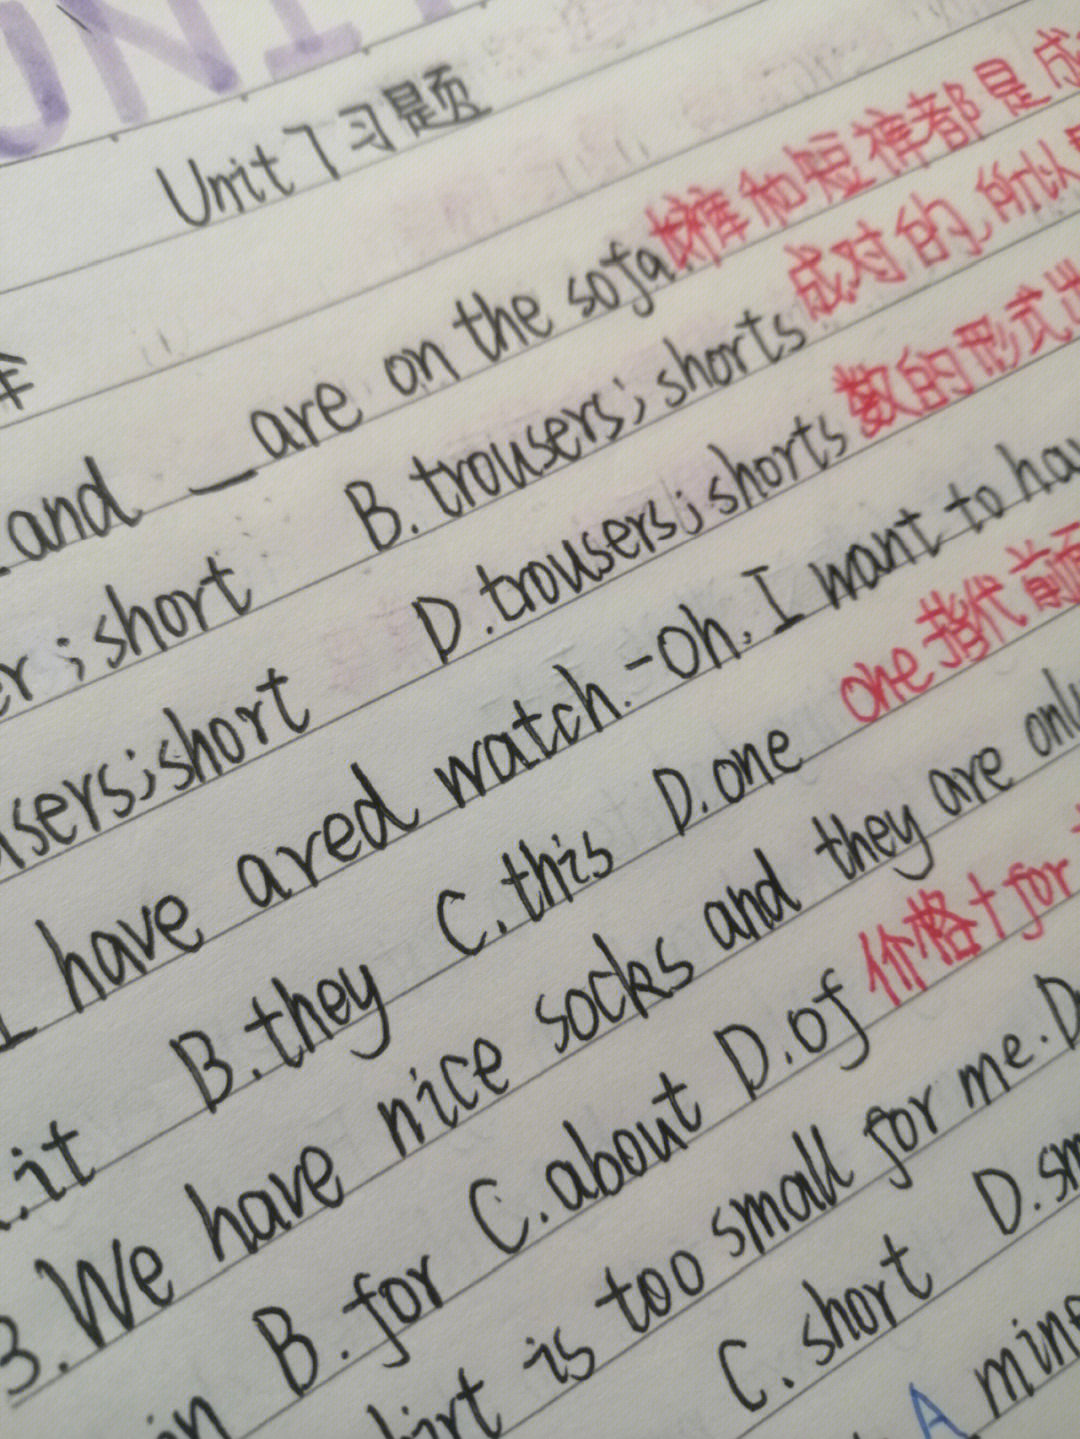 UNIT
Unit 7 习题
and _ are on the sofa. 长裤和短裤都是成
short B. trousers; shorts 成对的,所以
sers; short D. trousers; shorts 数的形式
I have a red watch. -Oh. I want to
it B. they C. this D. one one 指代前面
3. We have nice socks and they are only
in B. for C. about D. of 价格+for
is too small for me.
C. short D.
A